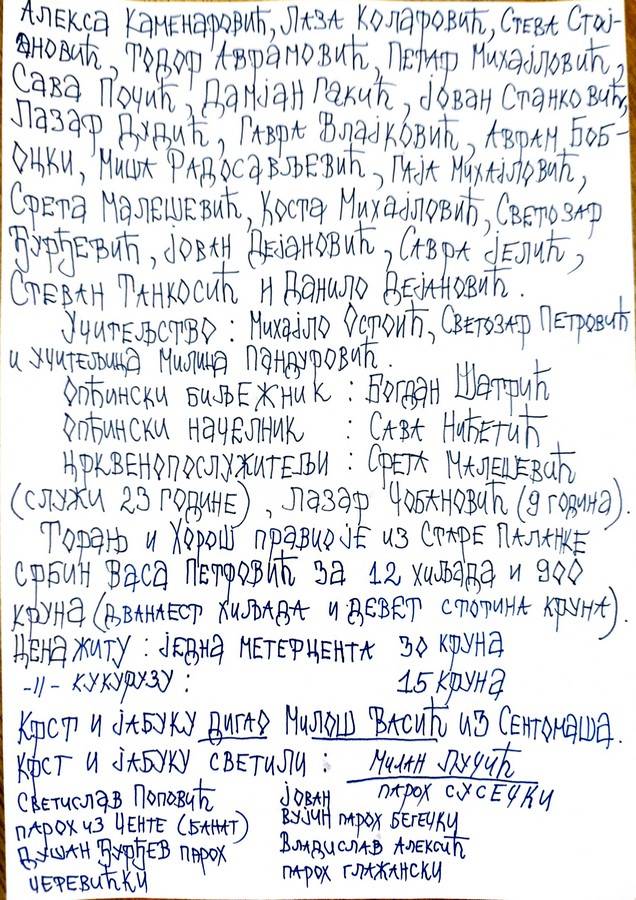 Алекса Каменаровић, Лаза Коларовић, Стева Стој-
ановић, Тодор Аврамовић, Петар Михајловић,
Сава Почић, Дамјан Гакић, Јован Станковић,
Лазар Дудић, Гавра Влајковић, Аврам Боб-
оцки, Миша Радосављевић, Гаја Михајловић,
Срета Малешевић, Коста Михајловић, Светозар
Ђурђевић, Јован Дејановић, Савра Јелић,
Стеван Танкосић и Данило Дејановић.
Учитељство: Михајло Остоић, Светозар Петровић
и учитељица Милица Пандуровић.
Опћински биљежник: Богдан Шатрић
Опћински начелник : Сава Нићетић
Црквенопослужитељи: Срета Малешевић
(служи 23 године), Лазар Чобановић (9 година).
Торањ и Хорош правио је из Старе Паланке
србин Васа Петровић за 12 хиљада и 900
круна (дванаест хиљада и девет стотина круна).
Цена житу: једна метерцента 30 круна
-||- кукурузу: 15 круна
Крст и јабуку дигао Милош Васић из Сентомаша.
Крст и јабуку светили: Милан Лучић
парох сусечки
Светислав Поповић
парох из Ченте (Банат)
Душан Ђурђев парох
черевићки
Јован
Вујчин парох бегечки
Владислав Алексић
парох гложански